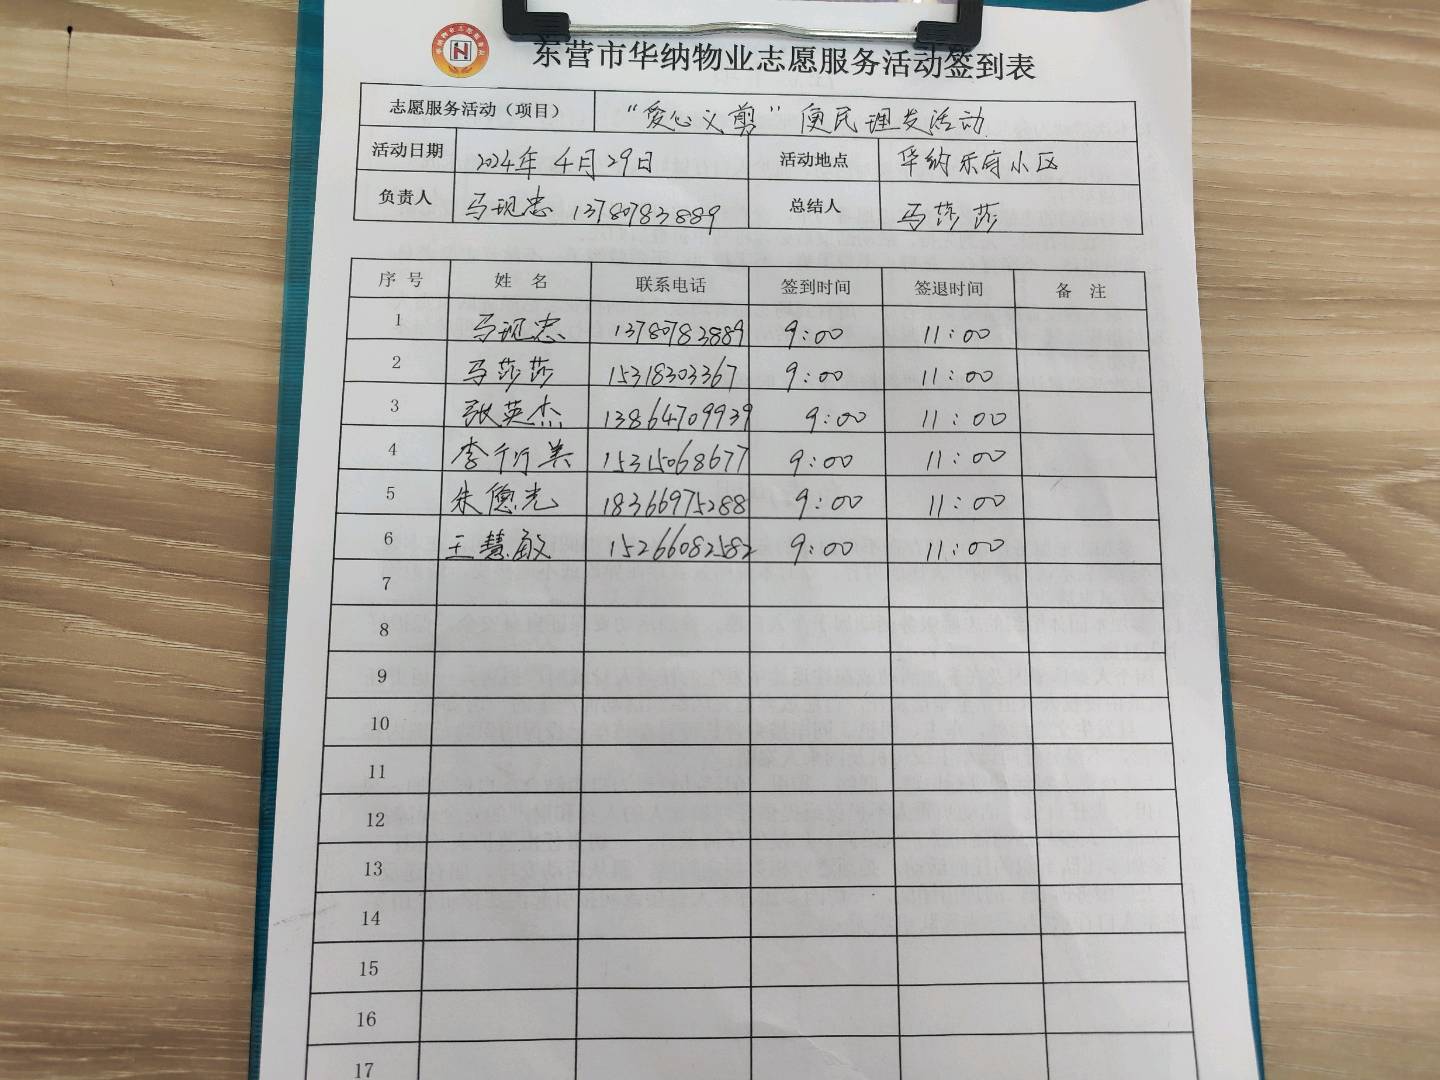 东营市华纳物业志愿服务活动签到表
志愿服务活动（项目） “爱心义剪”便民理发活动
活动日期 2024年4月29日 活动地点 华纳乐府小区
负责人 马现忠 13780783889 总结人 马莎莎
序号 姓名 联系电话 签到时间 签退时间 备注
1 马现忠 13780783889 9:00 11:00
2 马莎莎 15318303367 9:00 11:00
3 张英杰 13864709939 9:00 11:00
4 李衍美 15315068677 9:00 11:00
5 朱德光 18366975288 9:00 11:00
6 王慧敏 15266082582 9:00 11:00
7
8
9
10
11
12
13
14
15
16
17